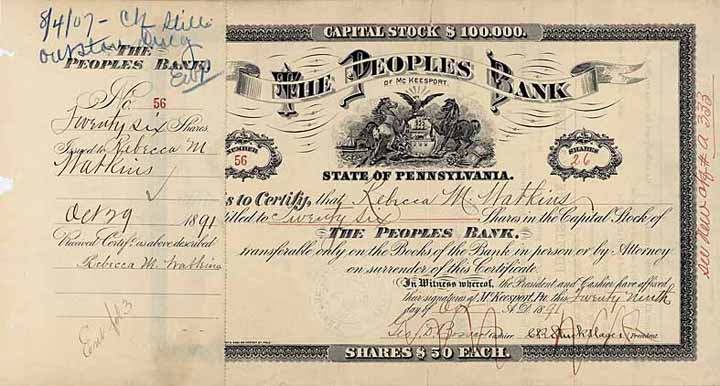 8/4/07 - Ctf Still
outstanding
THE
PEOPLES BANK
No 56
Twenty six Shares
Issued to Rebecca M
Watkins
Oct 29 1891
Received Certif. as above described
Rebecca M. Watkins
Ent fol 3
CAPITAL STOCK $100.000.
THE PEOPLES BANK
OF MCKEESPORT.
NUMBER
56
SHARES
26
STATE OF PENNSYLVANIA.
s to Certify, that Rebecca M. Watkins
titled to Twenty Six Shares in the Capital Stock of
THE PEOPLES BANK.
transferable only on the Books of the Bank in person or by Attorney
on surrender of this Certificate
In Witness whereof, the President and Cashier have affixed
their signatures at McKeesport, Pa. this twenty ninth
day of Oct A.D. 1891
Cashier President
SHARES $50 EACH.
see new aff # A 333